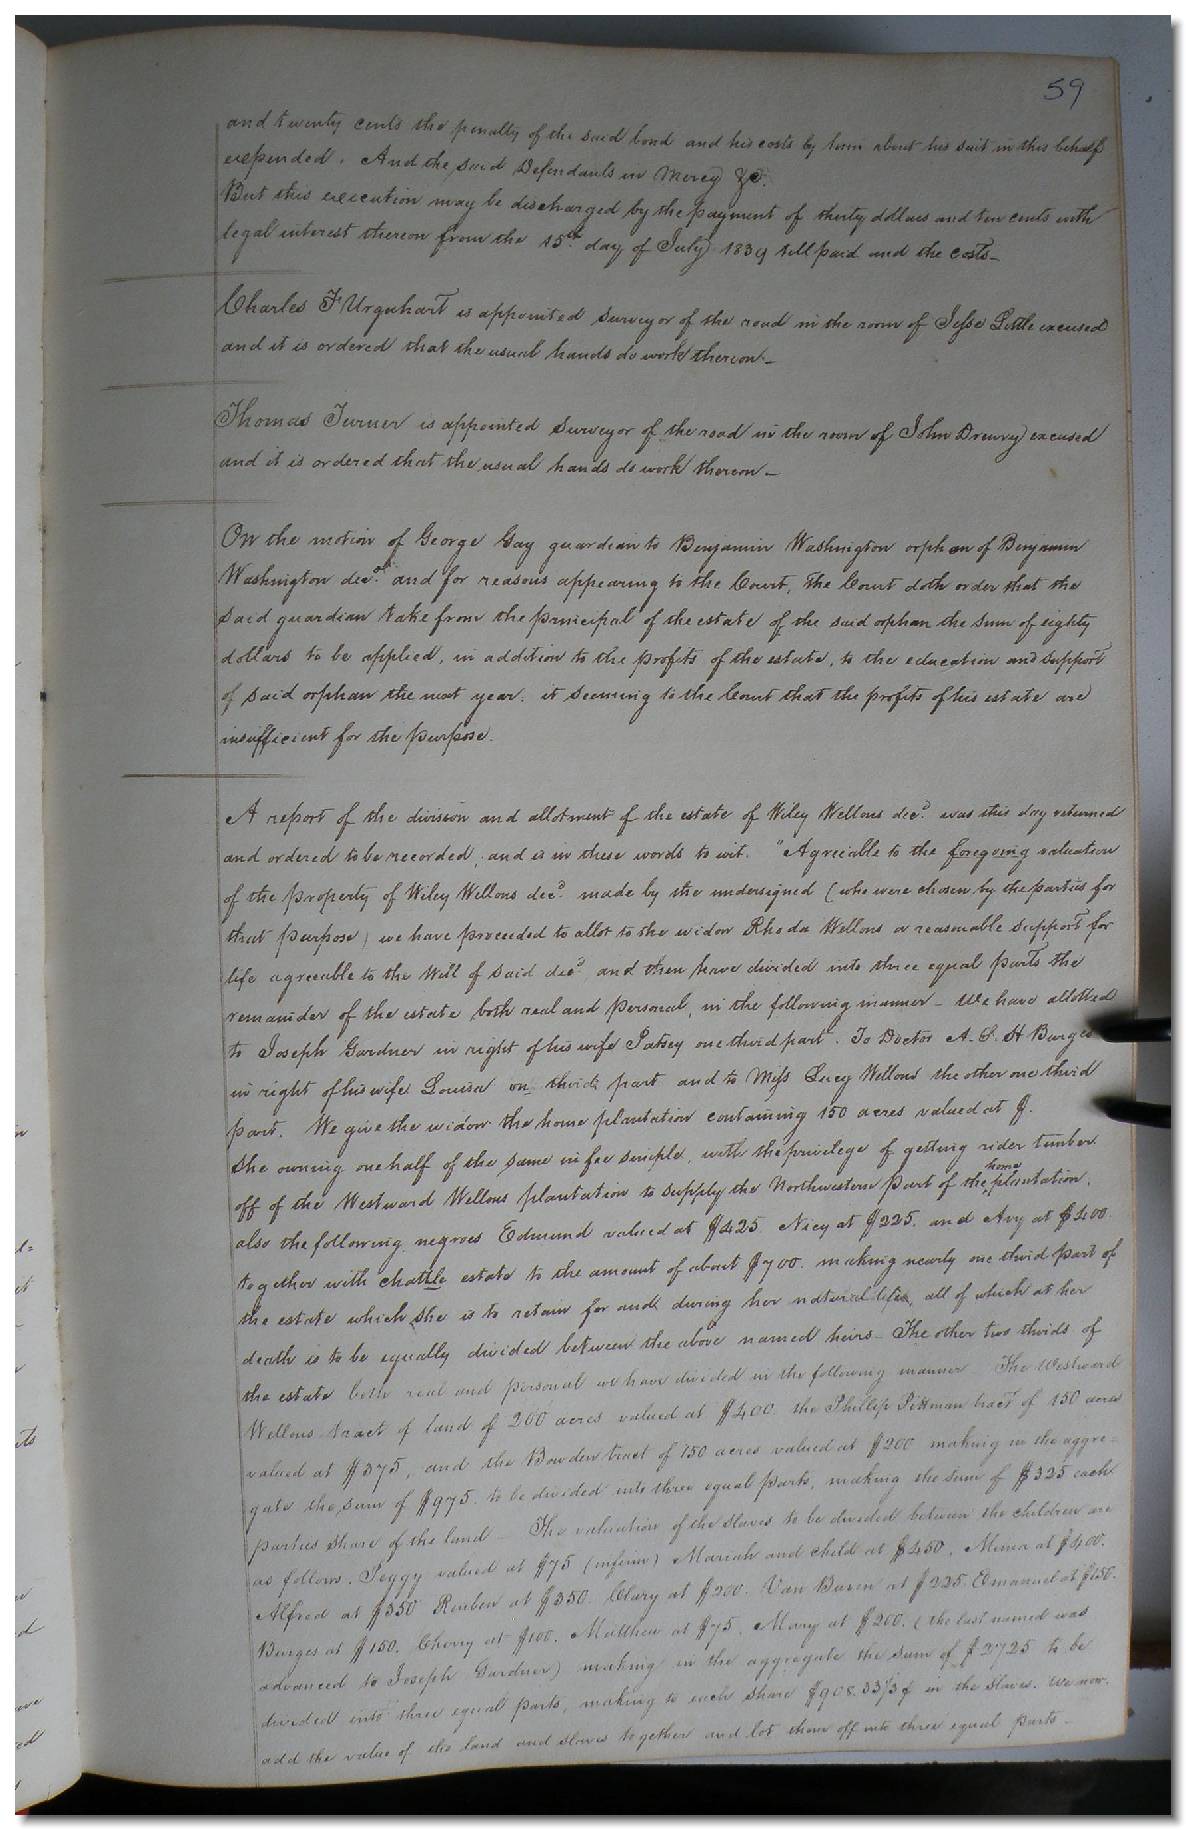 59
and twenty cents the penalty of the said bond and his costs by him about his suit in this behalf
expended. And the said Defendants in Mercy &c.
But this execution may be discharged by the payment of thirty dollars and ten cents with
legal interest thereon from the 15th day of July 1839 till paid and the costs—
Charles F Urquhart is appointed surveyor of the road in the room of Jesse Little excused
and it is ordered that the usual hands do work thereon—
Thomas Turner is appointed surveyor of the road in the room of John Drewry excused
and it is ordered that the usual hands do work thereon—
On the motion of George Gay guardian to Benjamin Washington orphan of Benjamin
Washington decd. and for reasons appearing to the Court, The Court doth order that the
said guardian take from the principal of the estate of the said orphan the sum of eighty
dollars to be applied, in addition to the profits of the estate, to the education and support
of said orphan the next year. it seeming to the Court that the profits of his estate are
insufficient for the purpose.
A report of the division and allotment of the estate of Wiley Wellons decd. was this day returned
and ordered to be recorded, and is in these words to wit. "Agreeable to the foregoing valuation
of the property of Wiley Wellons decd. made by the undersigned (who were chosen by the parties for
that purpose) we have proceeded to allot to the widow Rhoda Wellons a reasonable support for
life agreeable to the Will of said decd. and then have divided into three equal parts the
remainder of the estate both real and personal, in the following manner – We have allotted
to Joseph Gardner in right of his wife Patsey one third part. To Doctor A. S. H Burges
in right of his wife Louisa on third part and to Miss Lucy Wellons the other one third
part. We give the widow the home plantation containing 150 acres valued at $.
she owning one half of the same in fee simple, with the privilege of getting rider timber
off of the Westward Wellons plantation to supply the Northwestern part of the home plantation,
also the following negroes Edmund valued at $425 Nicy at $225. and Avy at $400
together with chattle estate to the amount of about $700. making nearly one third part of
the estate which she is to retain for and during her natural life, all of which at her
death is to be equally divided between the above named heirs– The other two thirds of
the estate both real and personal we have divided in the following manner The Westward
Wellons tract of land of 200 acres valued at $400. the Phillip Pittman tract of 150 acres
valued at $375, and the Bowden tract of 150 acres valued at $200 making in the aggre–
gate the sum of $975. to be divided into three equal parts, making the sum of $325 each
parties share of the land — The valuation of the slaves to be divided between the children are
as follows. Peggy valued at $75 (infirm) Mariah and child at $450, Mima at $400.
Alfred at $350 Reuben at $350. Clary at $200. Van Buren at $225. Emanuel at $150.
Burges at $150. Cherry at $100. Matthew at $75. Mary at $200. (the last named was
advanced to Joseph Gardner) making in the aggregate the sum of $2725 to be
divided into three equal parts, making to each share $908.33⅓ ¢ in the slaves. We now
add the value of the land and slaves together and lot them off into three equal parts–